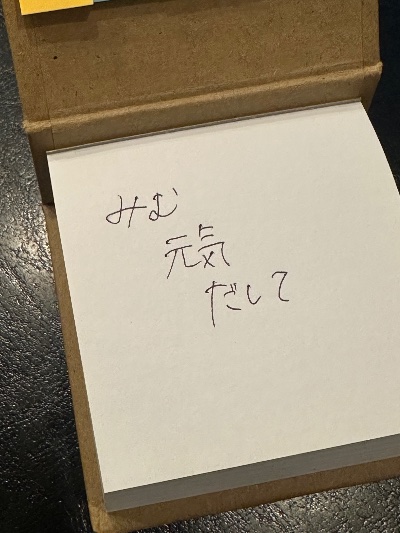 みむ
元気
だして